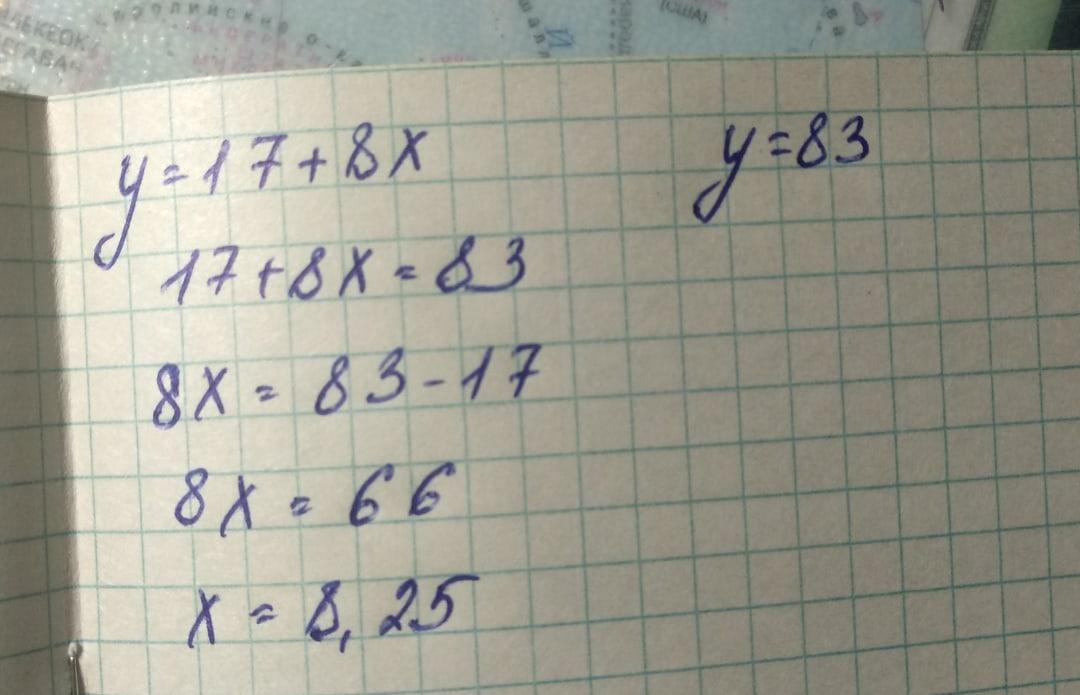 (США)
y=17+8x y=83
17+8x=83
8x=83-17
8x=66
x=8,25